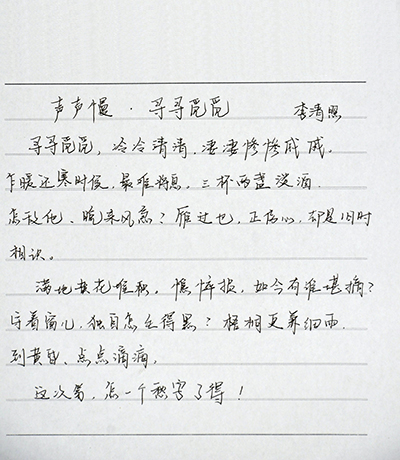 声声慢·寻寻觅觅 李清照
寻寻觅觅,冷冷清清,凄凄惨惨戚戚。
乍暖还寒时候,最难将息,三杯两盏淡酒.
怎敌他、晚来风急?雁过也,正伤心,却是旧时
相识。
满地黄花堆积,憔悴损,如今有谁堪摘?
守着窗儿,独自怎生得黑?梧桐更兼细雨,
到黄昏、点点滴滴,
这次第,怎一个愁字了得!